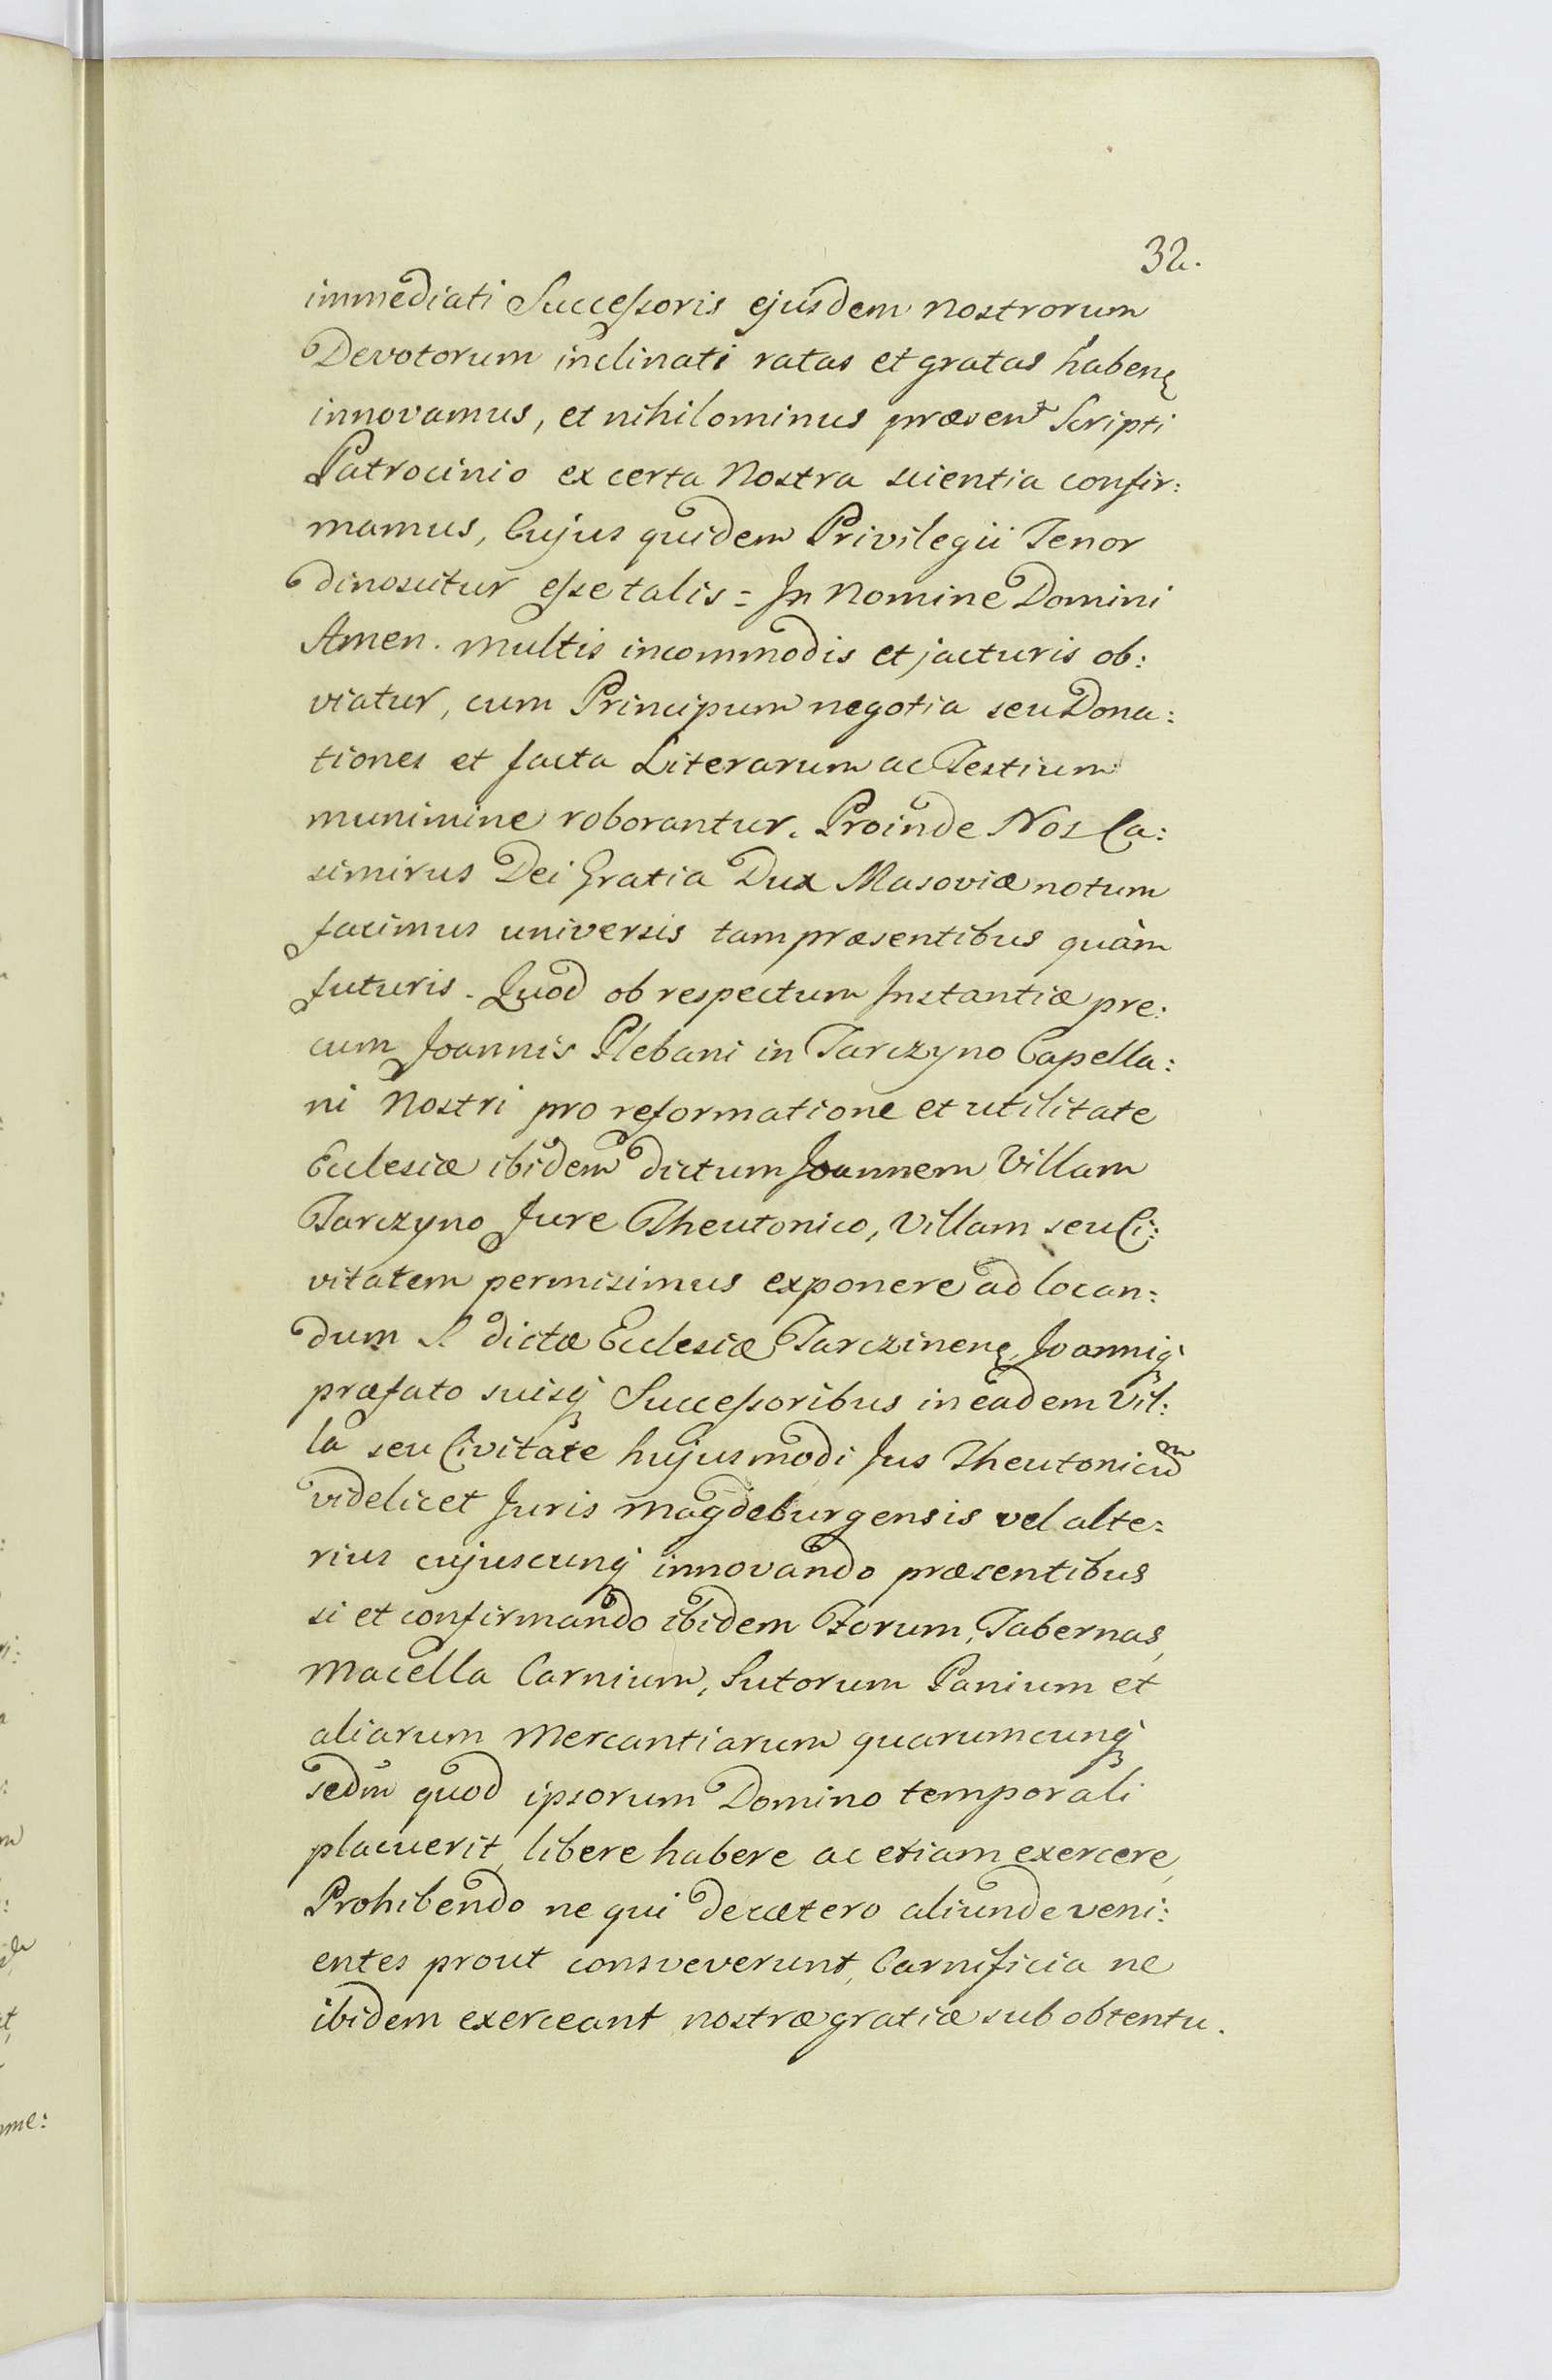 32.
immediati Successoris ejusdem nostrorum
Devotorum inclinati ratas et gratas habenę
innovamus, et nihilominus præsent Scripti
Patrocinio ex certa Nostra scientia confir:
mamus, Cujus quidem Privilegii Tenor
dinoscitur esse talis = In Nomine Domini
Amen. Multis incommodis et jacturis ob:
viatur, cum Principum negotia seu Dona:
tiones et facta Literarum ac Testium
munimine roborantur. Proinde Nos Ca:
simirus Dei Gratia Dux Masoviæ notum
facimus universis tam præsentibus quàm
futuris. Quod ob respectum Instantiæ pre:
cum Joannis Plebani in Tarczyno Capella:
ni Nostri pro reformatione et utilitate
Ecclesiæ ibidem dictum Joannem Villam
Tarczyno Jure Theutonico, Villam seu Ci:
vitatem permisimus exponere ad locan:
dum S. dictæ Ecclesiæ Tarczinenę, Joanniq́
præfato suisq́ Successoribus in eadem Vil:
la seu Civitate hujusmodi Jus Theutonicũm
videlicet Juris Magdeburgensis vel alte=
rius cujuscunq́ innovando præsentibus
si et confirmando ibidem Forum, Tabernas,
Macella Carnium, Sutorum Panium et
aliarum Mercantiarum quarumcunq́
sedm̃ quod ipsorum Domino temporali
placuerit, libere habere ac etiam exercere,
Prohibendo ne qui decætero aliunde veni:
entes prout consveverunt, Carnificia ne
ibidem exerceant nostræ gratiæ sub obtentu.